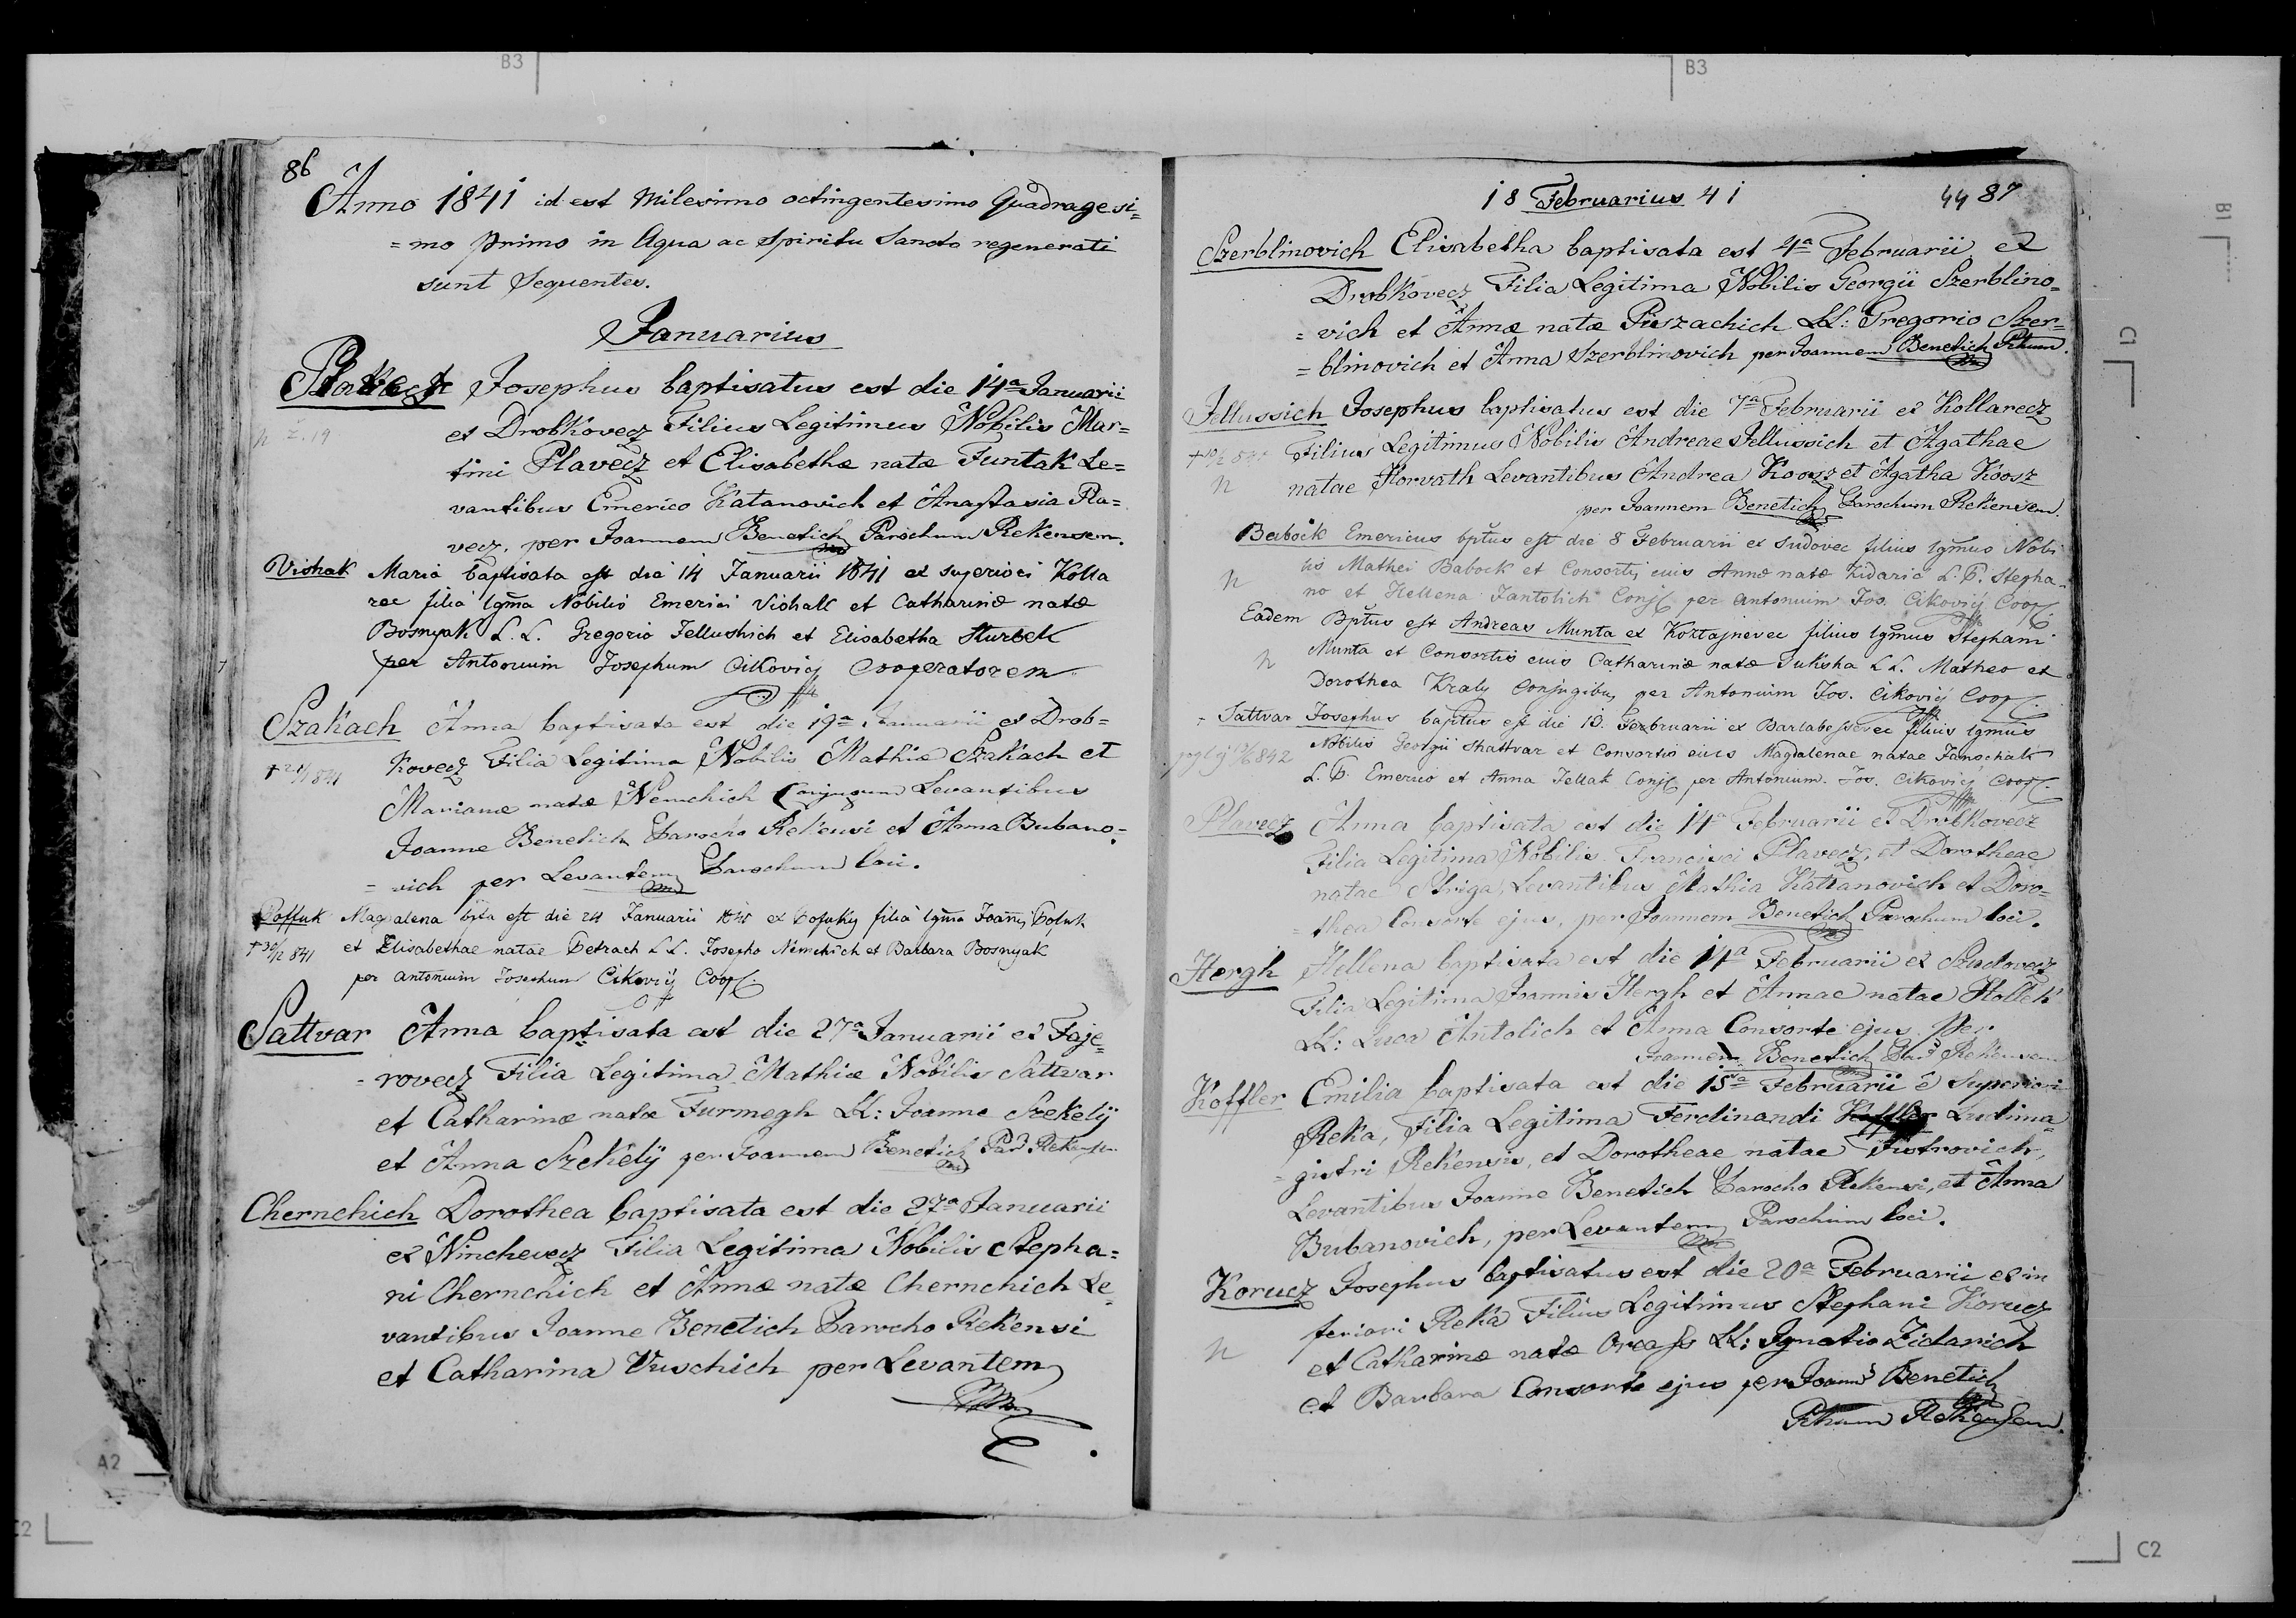 86
Anno 1841 id est Milesimo octingentesimo Quadragesi=
=mo primo in Aqua ac Spiritu Sancto regenerati
sunt Sequentes.
Januarius
Josephus baptisatus est die 14a Januarii
ex Drobkovecz Filius Legitimus Nobilis Mar=
tini Plavecz et Elisabethæ natæ Funtak Le=
vantibus Emerico Katanovich et Anastasia Pla=
vecz, per Joannem Benetich Parochum Rekensem.
Vishak Maria baptisata est die 14 Januarii 1841 ex superiori Kolla
rec filia lgma Nobilis Emerici Vishak et Catharinæ natæ
Bosnyak L.L. Gregorio Jellushich et Elisabetha Sturbek
per Antonium Josephum Cikovicy Cooperatorem
Szakach Anna baptisata est die 19a Januarii ex Drob=
kovecz Filia Legitima Nobilis Mathiæ Szakach et
† 21/1 841
Marianæ natæ Nemchich Conjugum Levantibus
Joanne Benetich Parocho Rekensi et Anna Bubano=
=vich per Levantem Parochum loci.
Magdalena bpta est die 24 Januarii filia lgma
et Elisabethae natae Petrach L.L. Josepho Nemchich et Barbara Bosnyak
per Antonium Josephum Cikovicy Coop.
Sattvar Anna baptisata est die 27a Januarii ex Faje=
=rovecz Filia Legitima Mathiæ Nobilis Sattvar
et Catharinæ natæ Furmegh LL: Joanne Szekely
et Anna Szekely per Joannem Benetich
Chernchich Dorothea baptisata est die 27a Januarii
ex Ninchevecz Filia Legitima Nobilis Stepha=
ni Chernchich et Annæ natæ Chernchich Le=
vantibus Joanne Benetich Parocho Rekensi
et Catharina Vuschich per Levantem
18 Februarius 41
44 87
Szerblinovich Elisabetha baptisata est 4a Februarii ex
Drobkovecz Filia Legitima Nobilis Georgii Szerblino=
=vich et Annæ natæ Piszachich LL: Gregorio Szer=
=blinovich et Anna Szerblinovich per Joannem Benetich
Jellussich Josephus baptisatus est die 7a Februarii ex Kollarecz
Filius Legitimus Nobilis Andreae Jellussich et Agathae
n natae Horvath Levantibus Andrea Koosz et Agatha Koosz
per Joannem Benetich Parochum Rekensem.
Babock Emericus bptus est die 8 Februarii ex Sudovec filius lgmus Nobi
lis Mathei Babock et Consortis eius Annæ natæ Zidarić L.P. Stepha-
n no et Hellena Jantolich per Antonium Jos. Cikovicy Coop.
Eadem Bptus est Andreas Munta ex Koztajnevec filius lgmus Stephani
n Munta et Consortis eius Catharinæ natæ Juksha L.L. Matheo et
Dorothea Kraly Conjugibus per Antonium Jos. Cikovicy Coop.
Sattvar Josephus baptus est die 13 Februarii ex filius lgmus
Nobilis Georgii Shattvar et Consortis eius Magdalenae natae Janschak
L.P. Emerico et Anna Jellak per Antonium Jos. Cikovicy Coop.
Plavecz Anna baptisata est die 14a Februarii ex Drobkovecz
Filia Legitima Nobilis Francisci Plavecz, et Dorotheae
natae Levantibus Mathia Kattanovich et Doro=
=thea Consorte ejus, per Joannem Benetich Parochum loci.
Hergh Hellena baptisata est die 14a Februarii ex Szudovecz
Filia Legitima Joannis Hergh et Annae natae
LL: Luca Antolich et Anna Consorte ejus per
Joannem Benetich Rekensem
Koffler Emilia baptisata est die 15a Februarii e Superiori
Reka, Filia Legitima Ferdinandi Koffler Ludima=
=gistri Rekensis, et Dorotheae natae
Levantibus Joanne Benetich Parocho Rekensi, et Anna
Bubanovich, per Levantem Parochum loci.
Korucz Josephus baptisatus est die 20a Februarii ex in
feriori Reka Filius Legitimus Stephani Korucz
n et Catharinæ natæ LL: Ignatio Zidarich
et Barbara Consorte ejus per Benetich
Rekensem.